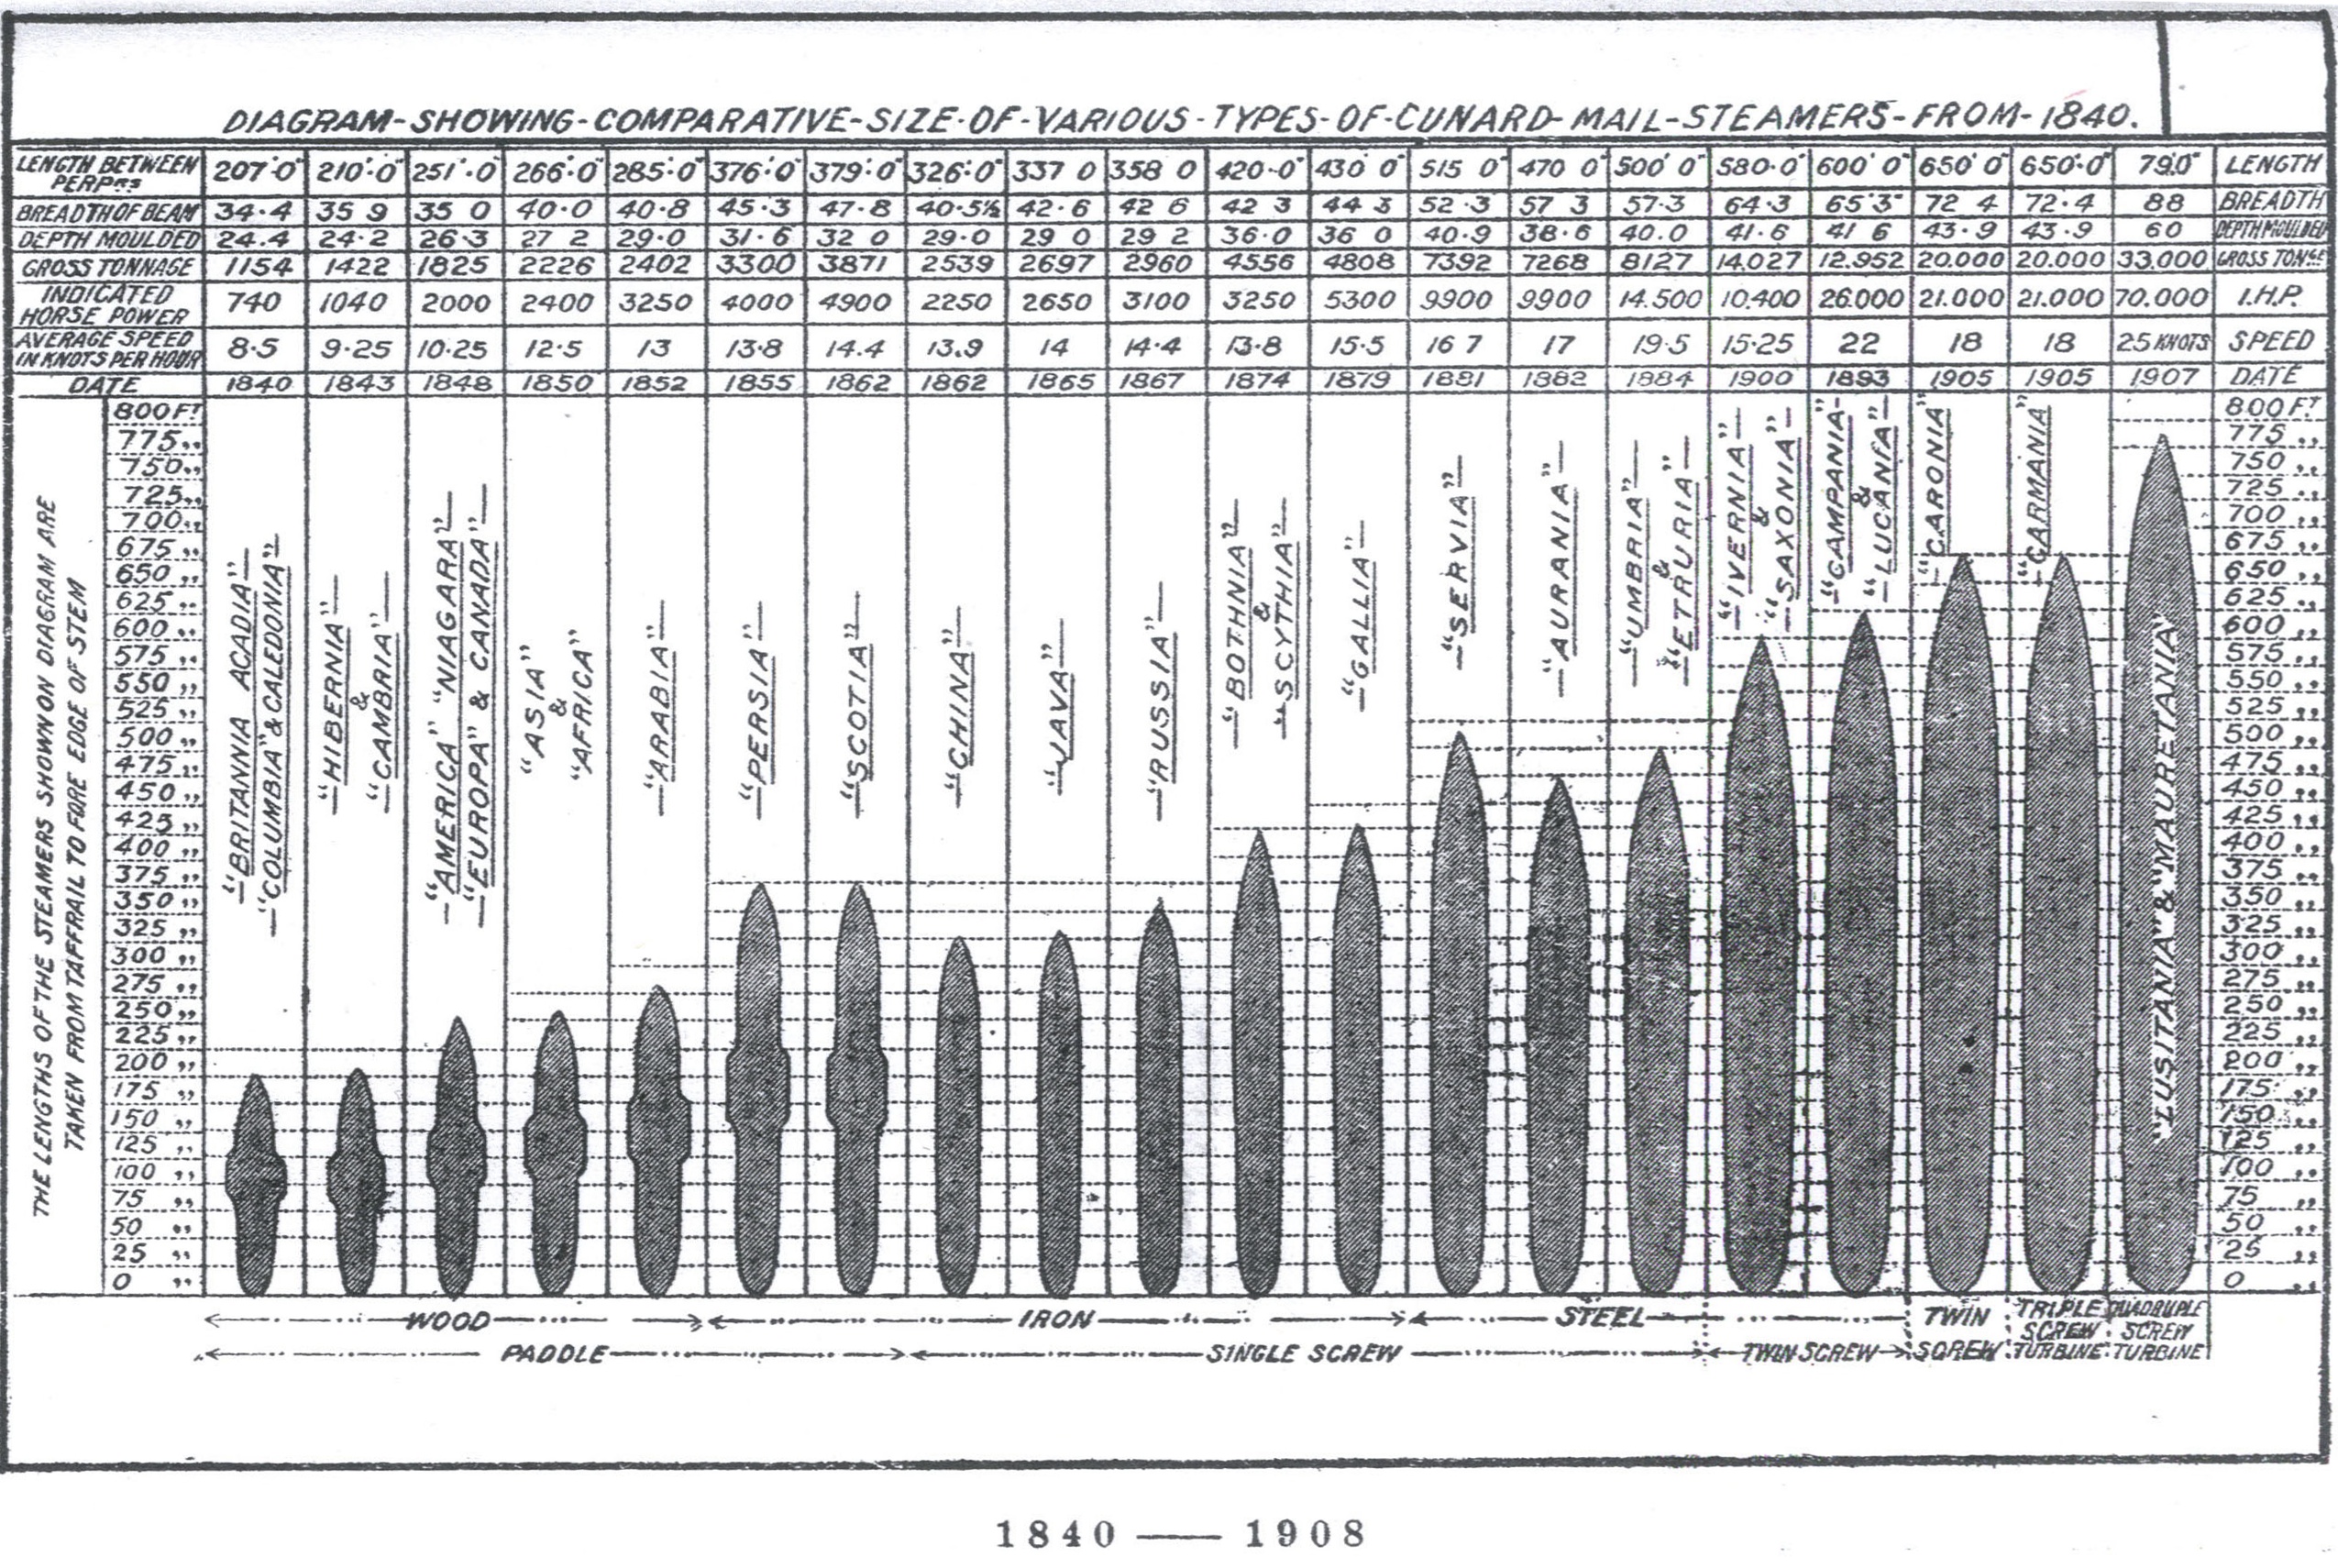 DIAGRAM-SHOWING-COMPARATIVE-SIZE-OF-VARIOUS-TYPES-OF-CUNARD-MAIL-STEAMERS-FROM-1840.
LENGTH BETWEEN PERPRS 207'·0" 210'·0" 251'·0" 266'·0" 285'·0" 376'·0" 379'·0" 326'·0" 337 0 358 0 420'·0" 430' 0" 515 0" 470 0" 500' 0" 580·0" 600' 0" 650' 0" 650'·0" 79'0" LENGTH
BREADTH OF BEAM 34·4 35 9 35 0 40·0 40·8 45·3 47·8 40·5½ 42·6 42 6 42 3 44 3 52·3 57 3 57·3 64·3 65'3" 72 4 72·4 88 BREADTH
DEPTH MOULDED 24.4 24·2 26·3 27 2 29·0 31·6 32 0 29·0 29 0 29 2 36·0 36 0 40·9 38·6 40.0 41·6 41 6 43·9 43.9 60 DEPTH MOULDED
GROSS TONNAGE 1154 1422 1825 2226 2402 3300 3871 2539 2697 2960 4556 4808 7392 7268 8127 14.027 12.952 20.000 20.000 33.000 GROSS TONGE
INDICATED HORSE POWER 740 1040 2000 2400 3250 4000 4900 2250 2650 3100 3250 5300 9900 9900 14.500 10.400 26.000 21.000 21.000 70.000 I.H.P.
AVERAGE SPEED IN KNOTS PER HOUR 8·5 9·25 10·25 12·5 13 13·8 14.4 13.9 14 14·4 13·8 15·5 16 7 17 19·5 15·25 22 18 18 25 KNOTS SPEED
DATE 1840 1843 1848 1850 1852 1855 1862 1862 1865 1867 1874 1879 1881 1882 1884 1900 1893 1905 1905 1907 DATE
THE LENGTHS OF THE STEAMERS SHOWN ON DIAGRAM ARE
TAKEN FROM TAFFRAIL TO FORE EDGE OF STEM
800 FT
775 ,,
750 ,,
725 ,,
700 ,,
675 ,,
650 ,,
625 ,,
600 ,,
575 ,,
550 ,,
525 ,,
500 ,,
475 ,,
450 ,,
425 ,,
400 ,,
375 ,,
350 ,,
325 ,,
300 ,,
275 ,,
250 ,,
225 ,,
200 ,,
175 ,,
150 ,,
125 ,,
100 ,,
75 ,,
50 ,,
25 ,,
0 ,,
"BRITANNIA ACADIA"
"COLUMBIA" & CALEDONIA"
"HIBERNIA"
&
"CAMBRIA"
"AMERICA" "NIAGARA"
"EUROPA" & CANADA"
"ASIA"
&
"AFRICA"
"ARABIA"
"PERSIA"
"SCOTIA"
"CHINA"
"JAVA"
"RUSSIA"
"BOTHNIA"
&
"SCYTHIA"
"GALLIA"
"SERVIA"
"AURANIA"
"UMBRIA"
&
"ETRURIA"
"IVERNIA"
&
"SAXONIA"
"CAMPANIA"
&
"LUCANIA"
"CARONIA"
"CARMANIA"
"LUSITANIA" & "MAURETANIA"
800 FT
775 ,,
750 ,,
725 ,,
700 ,,
675 ,,
650 ,,
625 ,,
600 ,,
575 ,,
550 ,,
525 ,,
500 ,,
475 ,,
450 ,,
425 ,,
400 ,,
375 ,,
350 ,,
325 ,,
300 ,,
275 ,,
250 ,,
225 ,,
200 ,,
175 ,,
150 ,,
125 ,,
100 ,,
75 ,,
50 ,,
25 ,,
0 ,,
WOOD IRON STEEL
PADDLE SINGLE SCREW TWIN SCREW
TWIN
SCREW
TRIPLE
SCREW
TURBINE
QUADRUPLE
SCREW
TURBINE
1840 — 1908